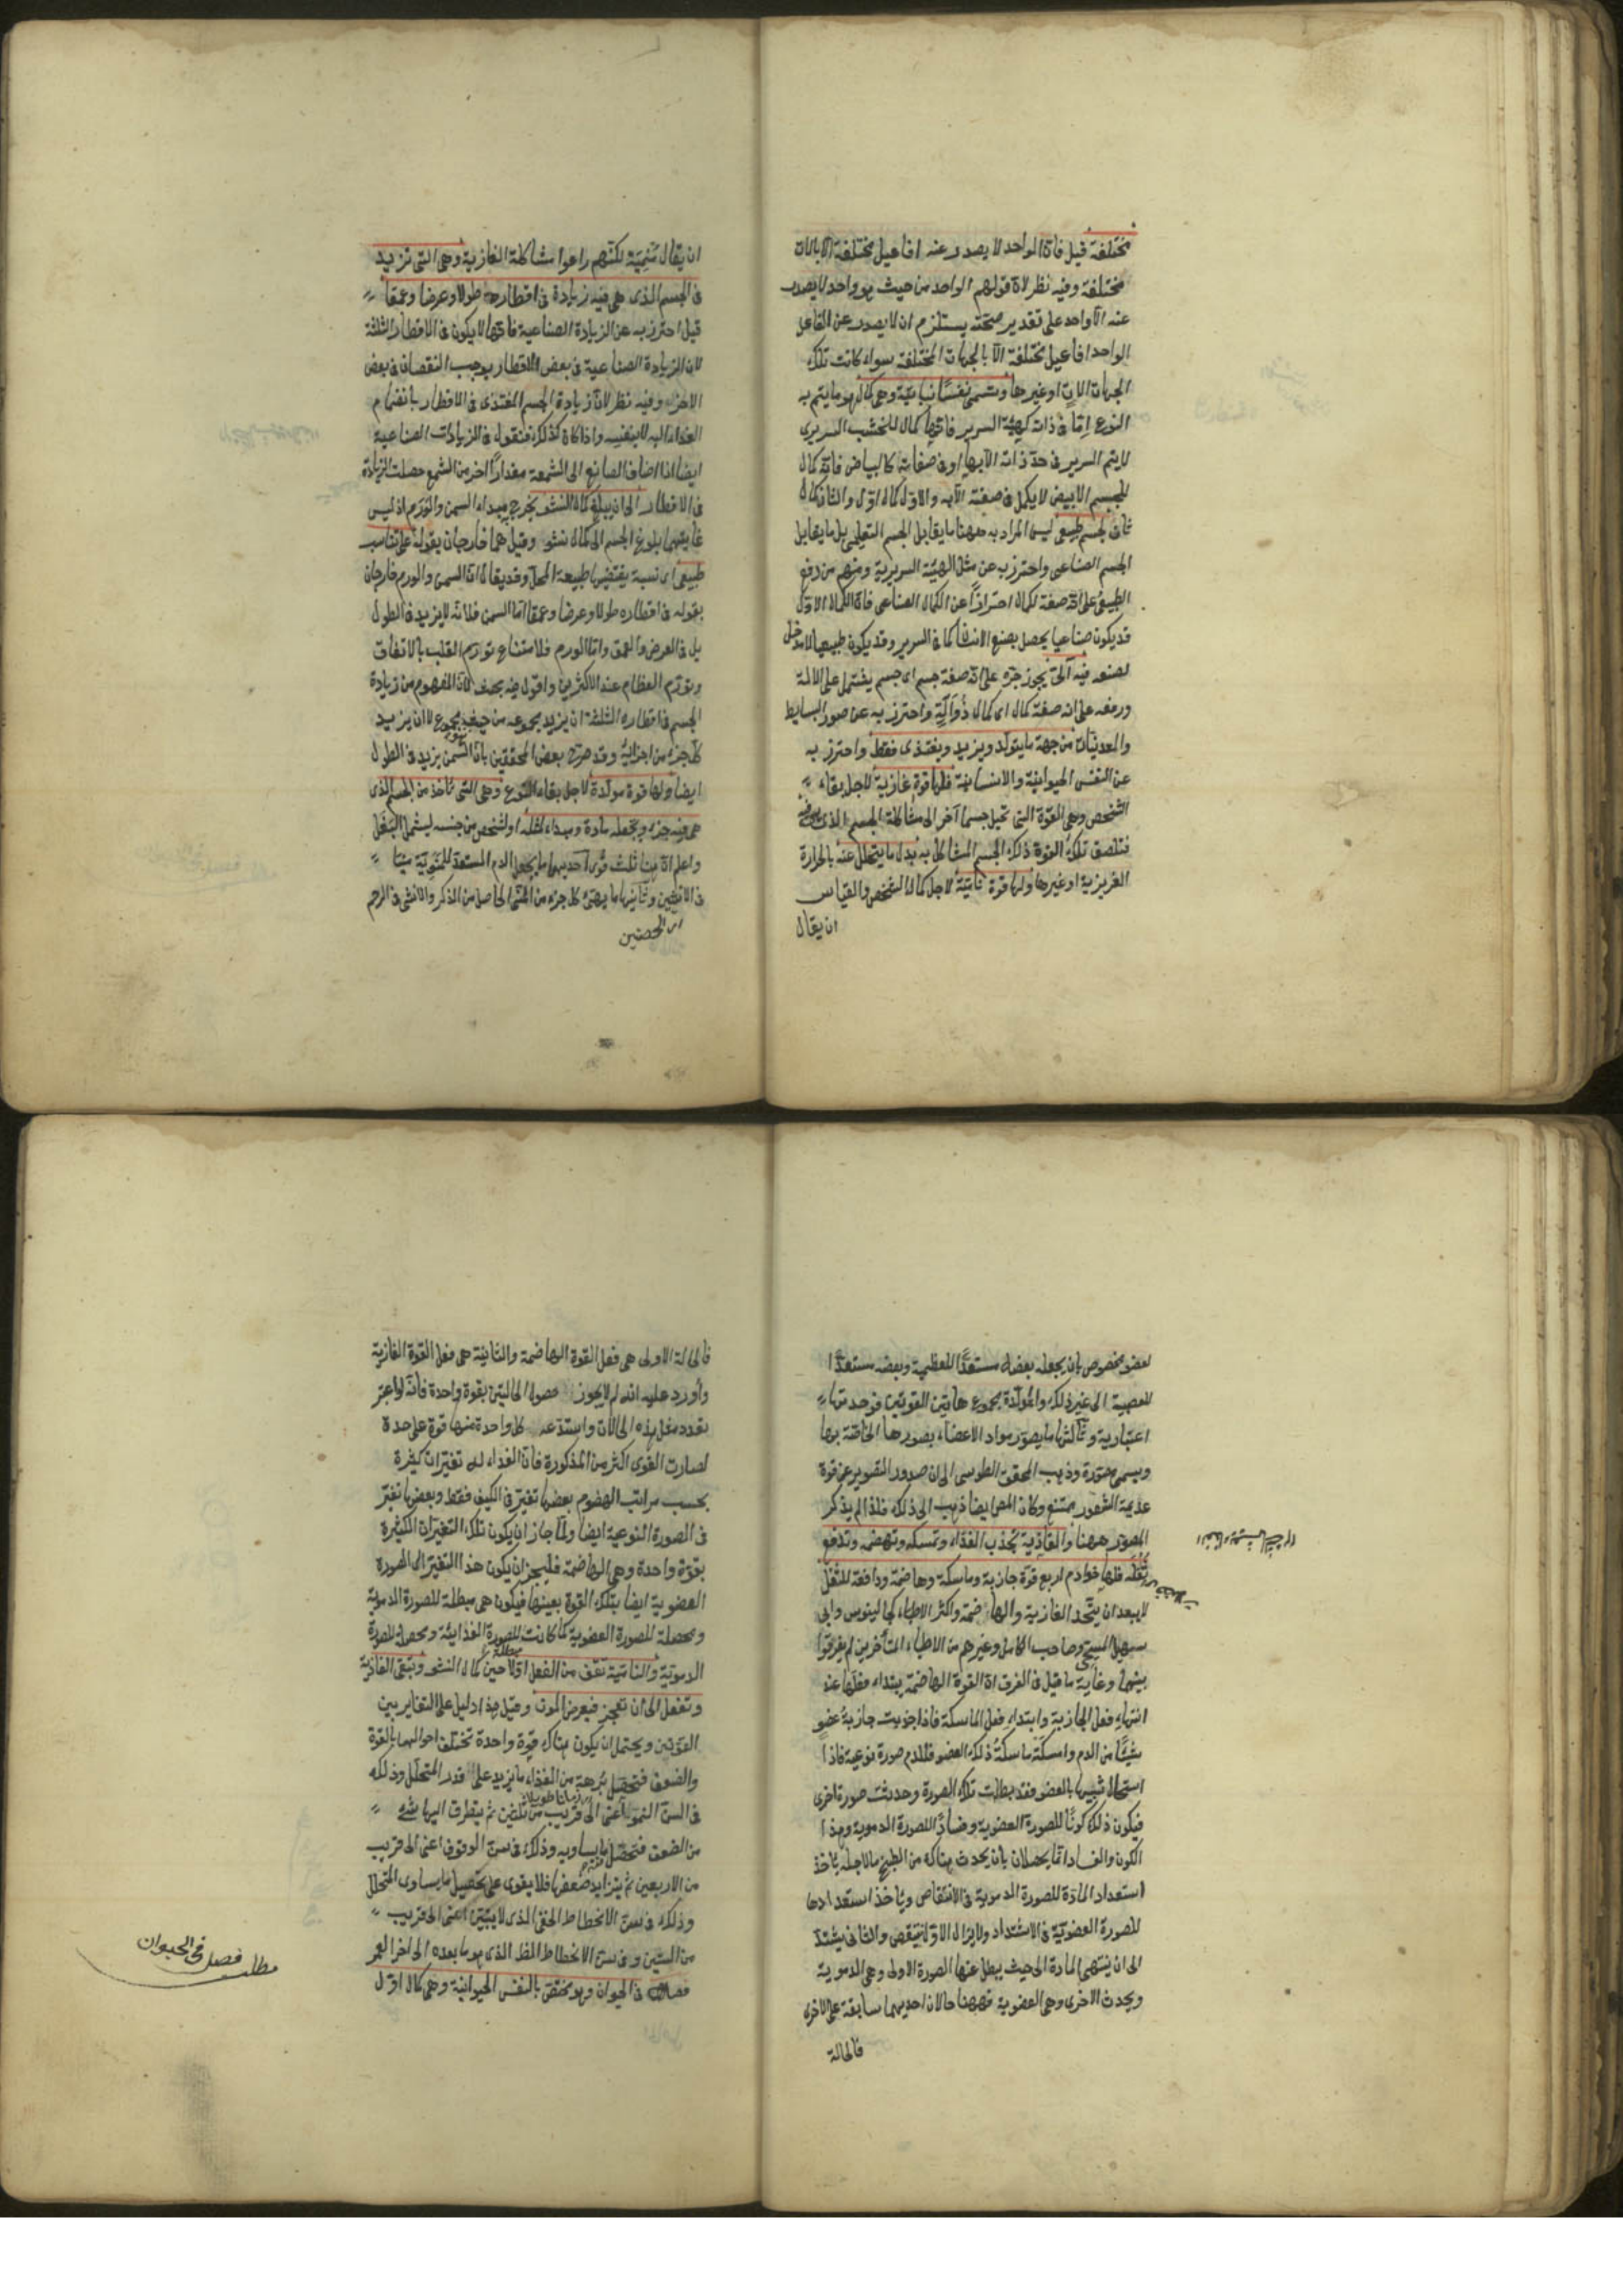 مختلفة قيل فان الواحد لا يصدر عنه افاعيل مختلفة الا بالات
مختلفة وفيه نظر لان قولهم الواحد من حيث هو واحد لا يصدر
عنه الا واحد على تقدير صحته يستلزم ان لا يصدر عن الفاعل
الواحد افاعيل مختلفة الا بالجهات المختلفة سواء كانت تلك
الجهات الات او غيرها وتسمى نفسا نباتية وهى كمال هو ما يتم به
النوع اما فى ذاته كهيئة السرير فانها كمال للخشب السريرى
لا يتم السرير فى حد ذاته الا بها او فى صفاته كالبياض فانه كمال
للجسم الابيض لا يكمل فى صفته الا به والاول كمال اول والثانى كمال
ثان لجسم طبيعى ليس المراد به ههنا ما يقابل الجسم التعليمى بل ما يقابل
الجسم الصناعى واحترز به عن مثل الهيئة السريرية ومنهم من رفع
الطبيعى على انه صفة لكمال احترازا عن الكمال الصناعى فان الكمال الاول
قد يكون صناعيا يحصل بصنع الانسان كما فى السرير وقد يكون طبيعيا لا مدخل
لصنعه فيه آلى يجوز جره على انه صفة جسم اى جسم يشتمل على الالة
ورفعه على انه صفة كمال اى كمال ذو آلة واحترز به عن صور البسايط
والمعدنيات من جهة ما يتولد ويزيد ويغتذى فقط واحترز به
عن النفس الحيوانية والانسانية فلها قوة غاذية لاجل بقاء
الشخص وهى القوة التى تحيل جسما آخر الى مشاكلة الجسم الذى هى فيه
فتلصق تلك القوة ذلك الجسم المشاكل به بدل ما يتحلل عنه بالحرارة
الغريزية او غيرها ولها قوة نامية لاجل كمال الشخص والقياس
ان يقال
ان يقال منمية لكنهم راعوا مشاكلة الغاذية وهى التى تزيد
فى الجسم الذى هى فيه زيادة فى اقطاره طولا وعرضا وعمقا
قيل احترز به عن الزيادة الصناعية فانها لا يكون فى الاقطار الثلثة
لان الزيادة الصناعية فى بعض الاقطار يوجب النقصان فى بعض
الاخر وفيه نظر لان زيادة الجسم المغتذى فى الاقطار بانضمام
الغذاء اليه لا بنفسه واذا كان كذلك فنقول فى الزيادات الصناعية
ايضا اذا اضاف الصانع الى الشمعة مقدارا اخر من الشمع حصلت الزيادة
فى الاقطار الى ان يبلغ كمال النشو يخرج مبداء السمن والورم اذ ليس
غايتهما بلوغ الجسم الى كمال نشو وقيل هما خارجان بقوله على تناسب
طبيعى اى نسبة يقتضيها طبيعة المحل وقد يقال ان السمن والورم خارجان
بقوله فى اقطاره طولا وعرضا وعمقا اما السمن فلانه لا يزيد فى الطول
بل فى العرض والعمق واما الورم فلامتناع تورم القلب بالاتفاق
وتورم العظام عند الاكثرين واقول فيه بحث لان المفهوم من زيادة
الجسم فى اقطاره الثلثة ان يزيد مجموعه من حيث هو مجموع لا ان يزيد
كل جزء من اجزائه وقد صرح بعض المحققين بان السمن يزيد فى الطول
ايضا ولها قوة مولدة لاجل بقاء النوع وهى التى تاخذ من الجسم الذى
هى فيه جزء وتجعله مادة ومبداء لمثله او لشخص من جنسه ليشمل البغل
واعلم ان هنا ثلث قوى احديها ما يجعل الدم المستعد للمنوية منيا
فى الانثيين وثانيها ما يهيئ كل جزء من المنى الحاصل من الذكر والانثى فى الرحم
اى الخصيتين
لعضو مخصوص بان يجعله بعضه مستعدا للعظمية وبعضه مستعدا
للعصبية الى غير ذلك والمولدة مجموع هاتين القوتين فوحدتها
اعتبارية وثالثها ما يصور مواد الاعضاء بصورها الخاصة بها
ويسمى مصورة وذهب المحقق الطوسى الى ان صدور التصوير عن قوة
عديمة الشعور ممتنع وكان المص ايضا ذهب الى ذلك فلذا لم يذكر
المصور ههنا والغاذية تجذب الغذاء وتمسكه وتهضمه وتدفع
ثفله فلها خوادم اربع قوة جاذبة وماسكة وهاضمة ودافعة للثفل
لا يبعد ان يتحد الغاذية والهاضمة واكثر الاطباء كجالينوس وابى
سهيل المسيحى وصاحب الكامل وغيرهم من الاطباء المتأخرين لم يفرقوا
بينهما وغاية ما قيل فى الفرق ان القوة الهاضمة يبتداء فعلها عند
انتهاء فعل الجاذبة وابتداء فعل الماسكة فاذا جذبت جاذبة عضو
شيئا من الدم وامسكته ماسكة ذلك العضو فللدم صورة نوعية فاذا
استحال شبيها بالعضو فقد بطلت تلك الصورة وحدثت صورة اخرى
فيكون ذلك كونا للصورة العضوية وفسادا للصورة الدموية وهذا
الكون والفساد انما يحصلان بان يحدث هناك من الطبخ ما لاجله ياخذ
استعداد المادة للصورة الدموية فى الانتقاص وياخذ استعدادها
للصورة العضوية فى الاشتداد ولا يزال الاول ينتقص والثانى يشتد
الى ان ينتهى المادة الى حيث يبطل عنها الصورة الاولى وهى الدموية
ويحدث الاخرى وهى العضوية فههنا حالان احديهما سابقة على الاخرى
فالحالة
فالحالة الاولى هى فعل القوة الهاضمة والثانية هى فعل القوة الغاذية
وأورد عليه انه لم لا يجوز حصول الحالتين بقوة واحدة فانه لو اعتبر
تعدد مثل هذه الحالات واستدعى كل واحدة منها قوة على حدة
لصارت القوى اكثر من المذكورة فان الغذاء له تغيرات كثيرة
بحسب مراتب الهضوم بعضها تغير فى الكيف فقط وبعضها تغير
فى الصورة النوعية ايضا ولما جاز ان يكون تلك التغيرات الكثيرة
بقوة واحدة وهى الهاضمة فليجز ان يكون هذا التغير الى الصورة
العضوية ايضا بتلك القوة بعينها فيكون هى مبطلة للصورة الدموية
ومحصلة للصورة العضوية كما كانت مبطلة للصورة الغذائية ومحصلة للصورة
الدموية والنامية تقف من الفعل اولا حين كمال النشو وتبقى الغاذية
وتفعل الى ان تعجز فيعرض الموت وقيل هذا دليل على التغاير بين
القوتين ويحتمل ان يكون هناك قوة واحدة تختلف احوالها بالقوة
والضعف فتحصل برهة من الغذاء ما يزيد على قدر المتحلل وذلك
فى السن النمو اعنى الى قريب من ثلثين ثم يتطرق اليها شئ
من الضعف فتحصل ما يساويه وذلك فى سن الوقوف اعنى الى قريب
من الاربعين ثم يتزايد ضعفها فلا يقوى على تحصيل ما يساوى المتحلل
وذلك فى سن الانحطاط الخفى الذى لا يتبين اعنى الى قريب
من الستين وفى سن الانحطاط الظ الذى هو ما بعده الى اخر العمر
فصل فى الحيوان وهو مختص بالنفس الحيوانية وهى كمال اول
مطلب فصل فى الحيوان